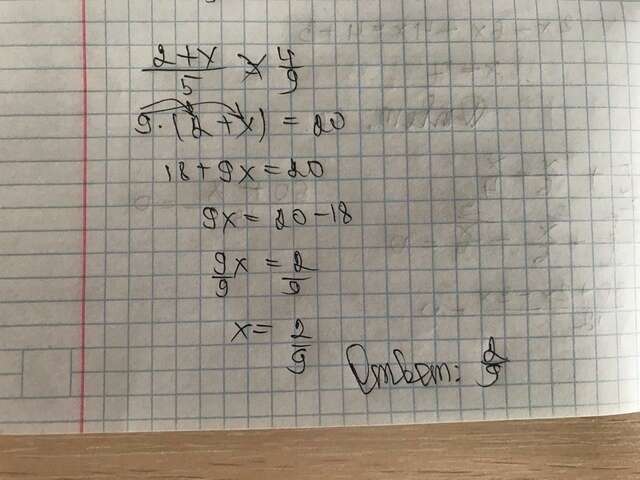 (2+x)/5 × 4/9
9·(2+x) = 20
18+9x=20
9x = 20-18
9/9 x = 2/9
x= 2/9
Ответ: 2/9